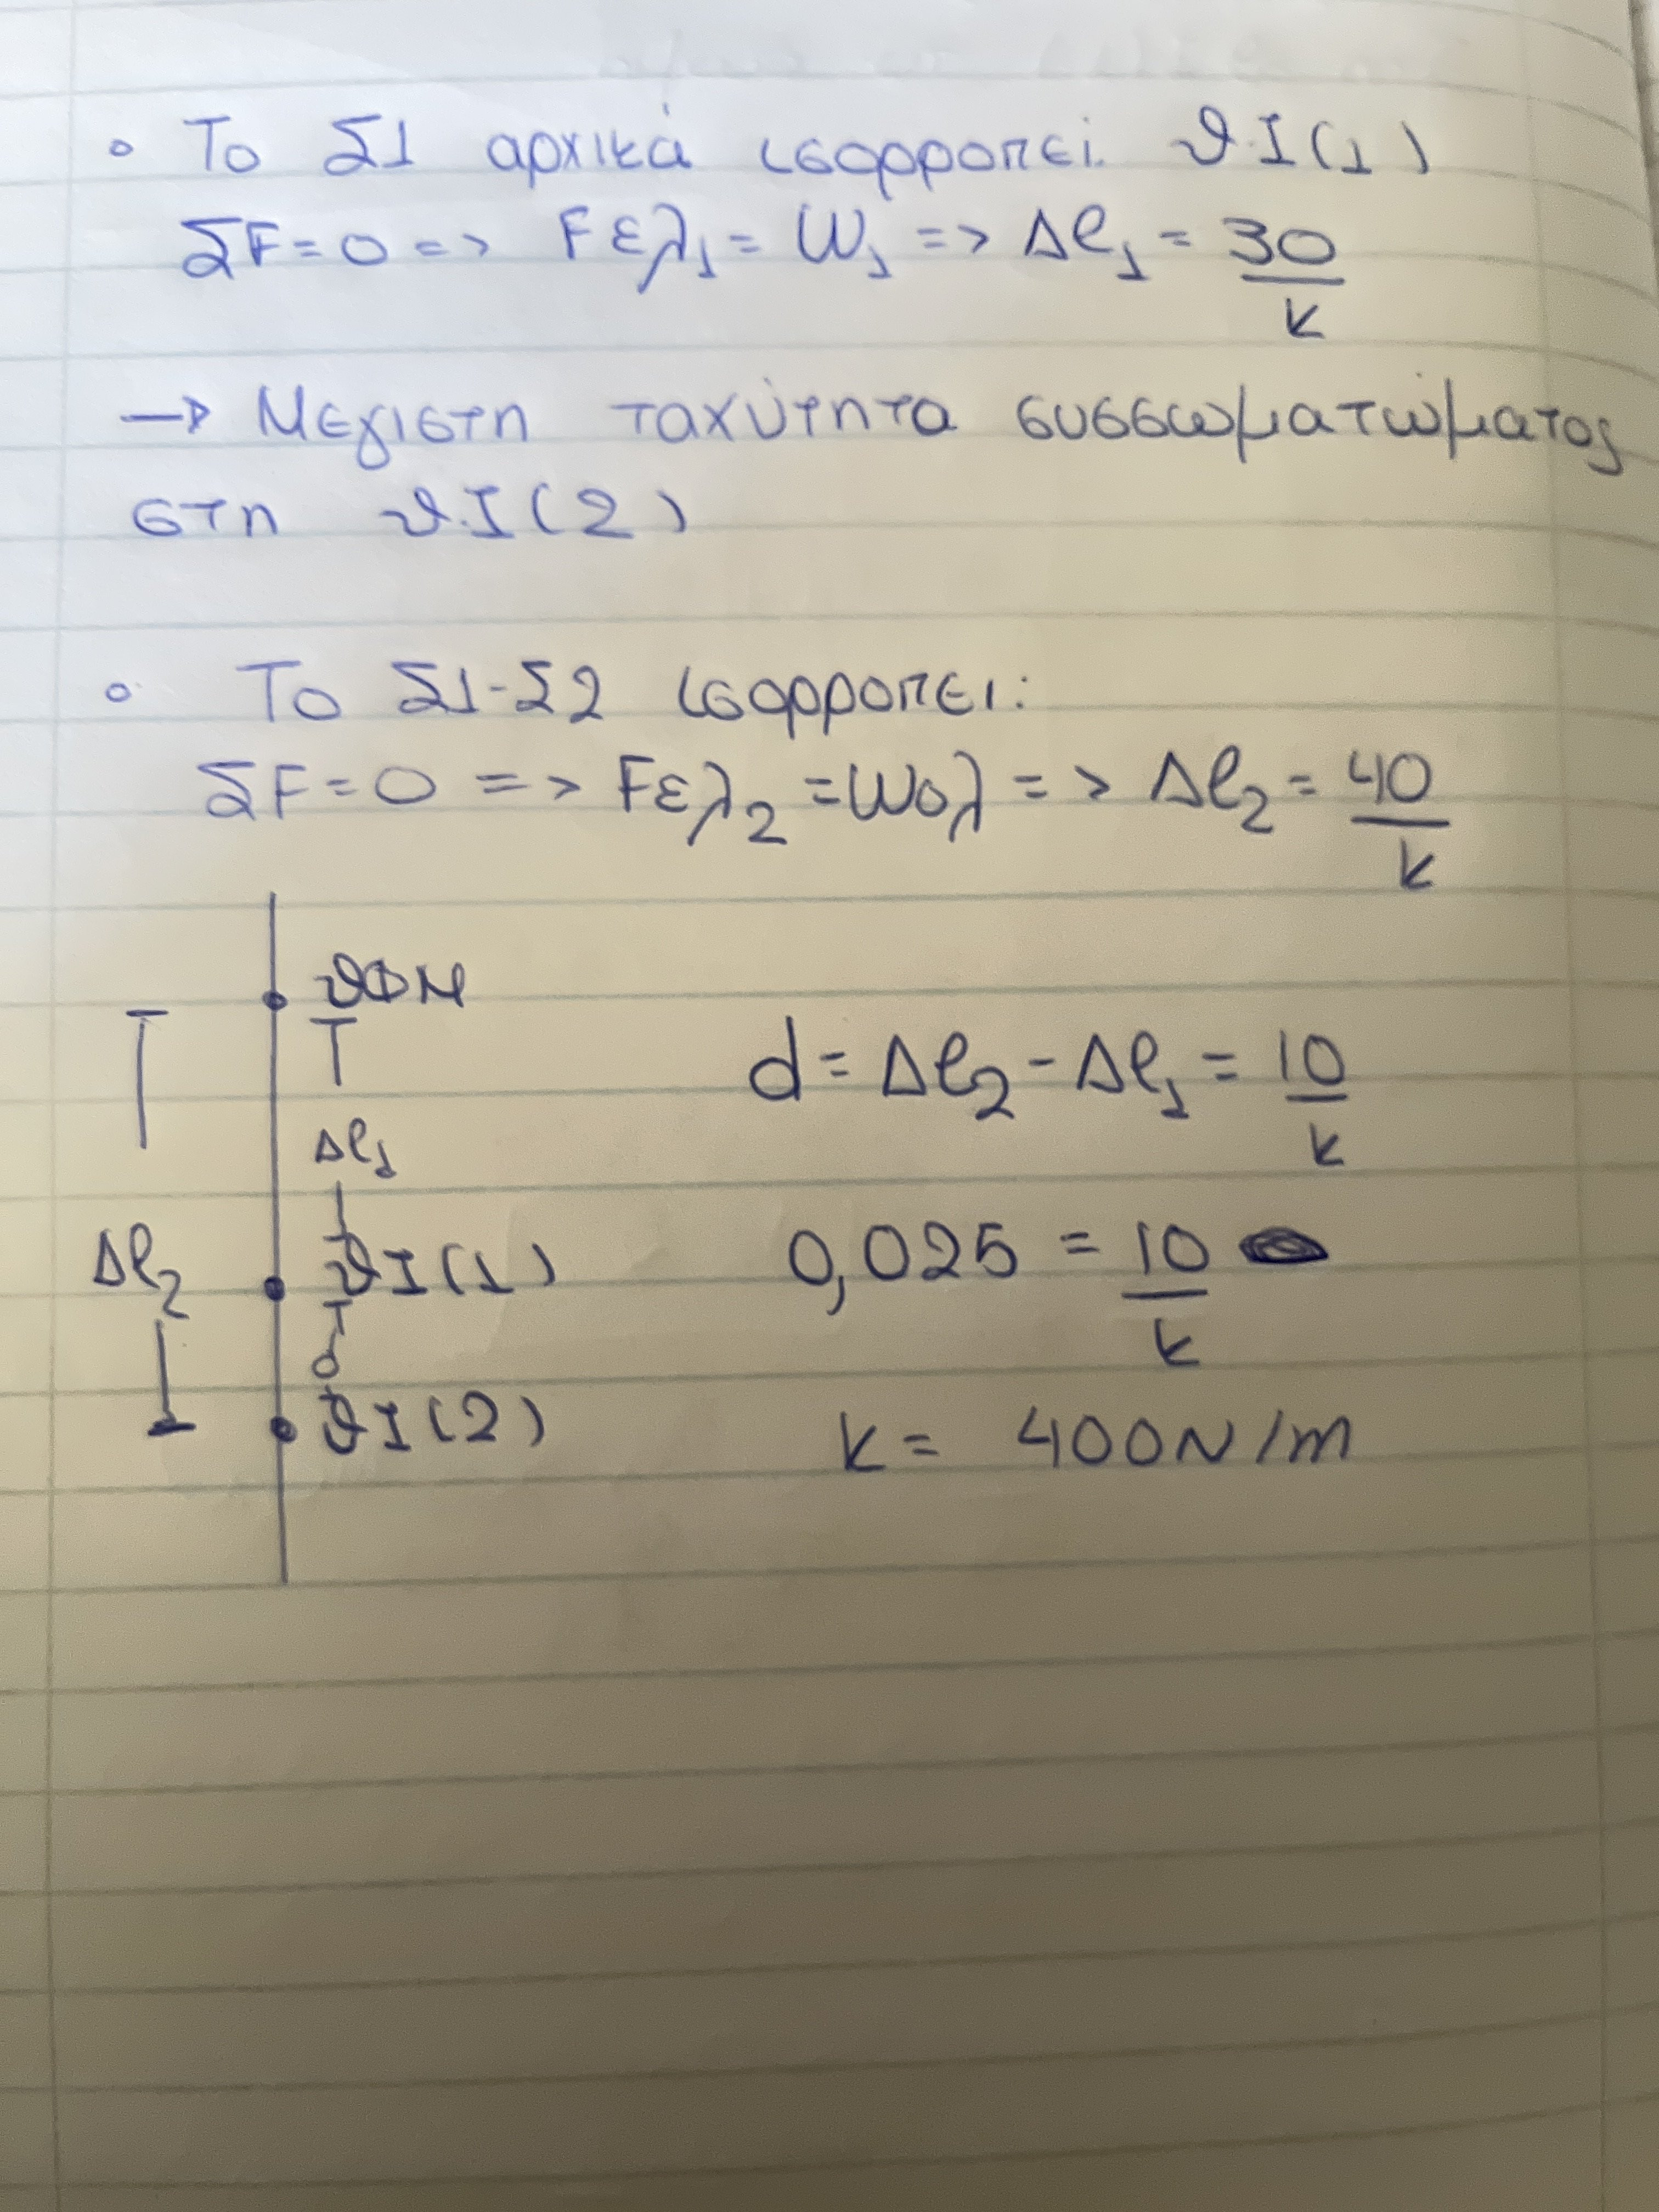 • Το Σ1 αρχικά ισορροπεί. θ.Ι(1)
ΣF=0 => Fελ₁ = W₁ => Δℓ₁ = 30/k
→ Μεγιστη ταχύτητα συσσωματώματος
στη θ.Ι(2)
• Το Σ1-Σ2 ισορροπει:
ΣF=0 => Fελ₂ = Wολ => Δℓ₂ = 40/k
θΦΜ
Δℓ₁
d = Δℓ₂ - Δℓ₁ = 10/k
Δℓ₂
θΙ(1)
0,025 = 10/k
d
θΙ(2)
k = 400N/m